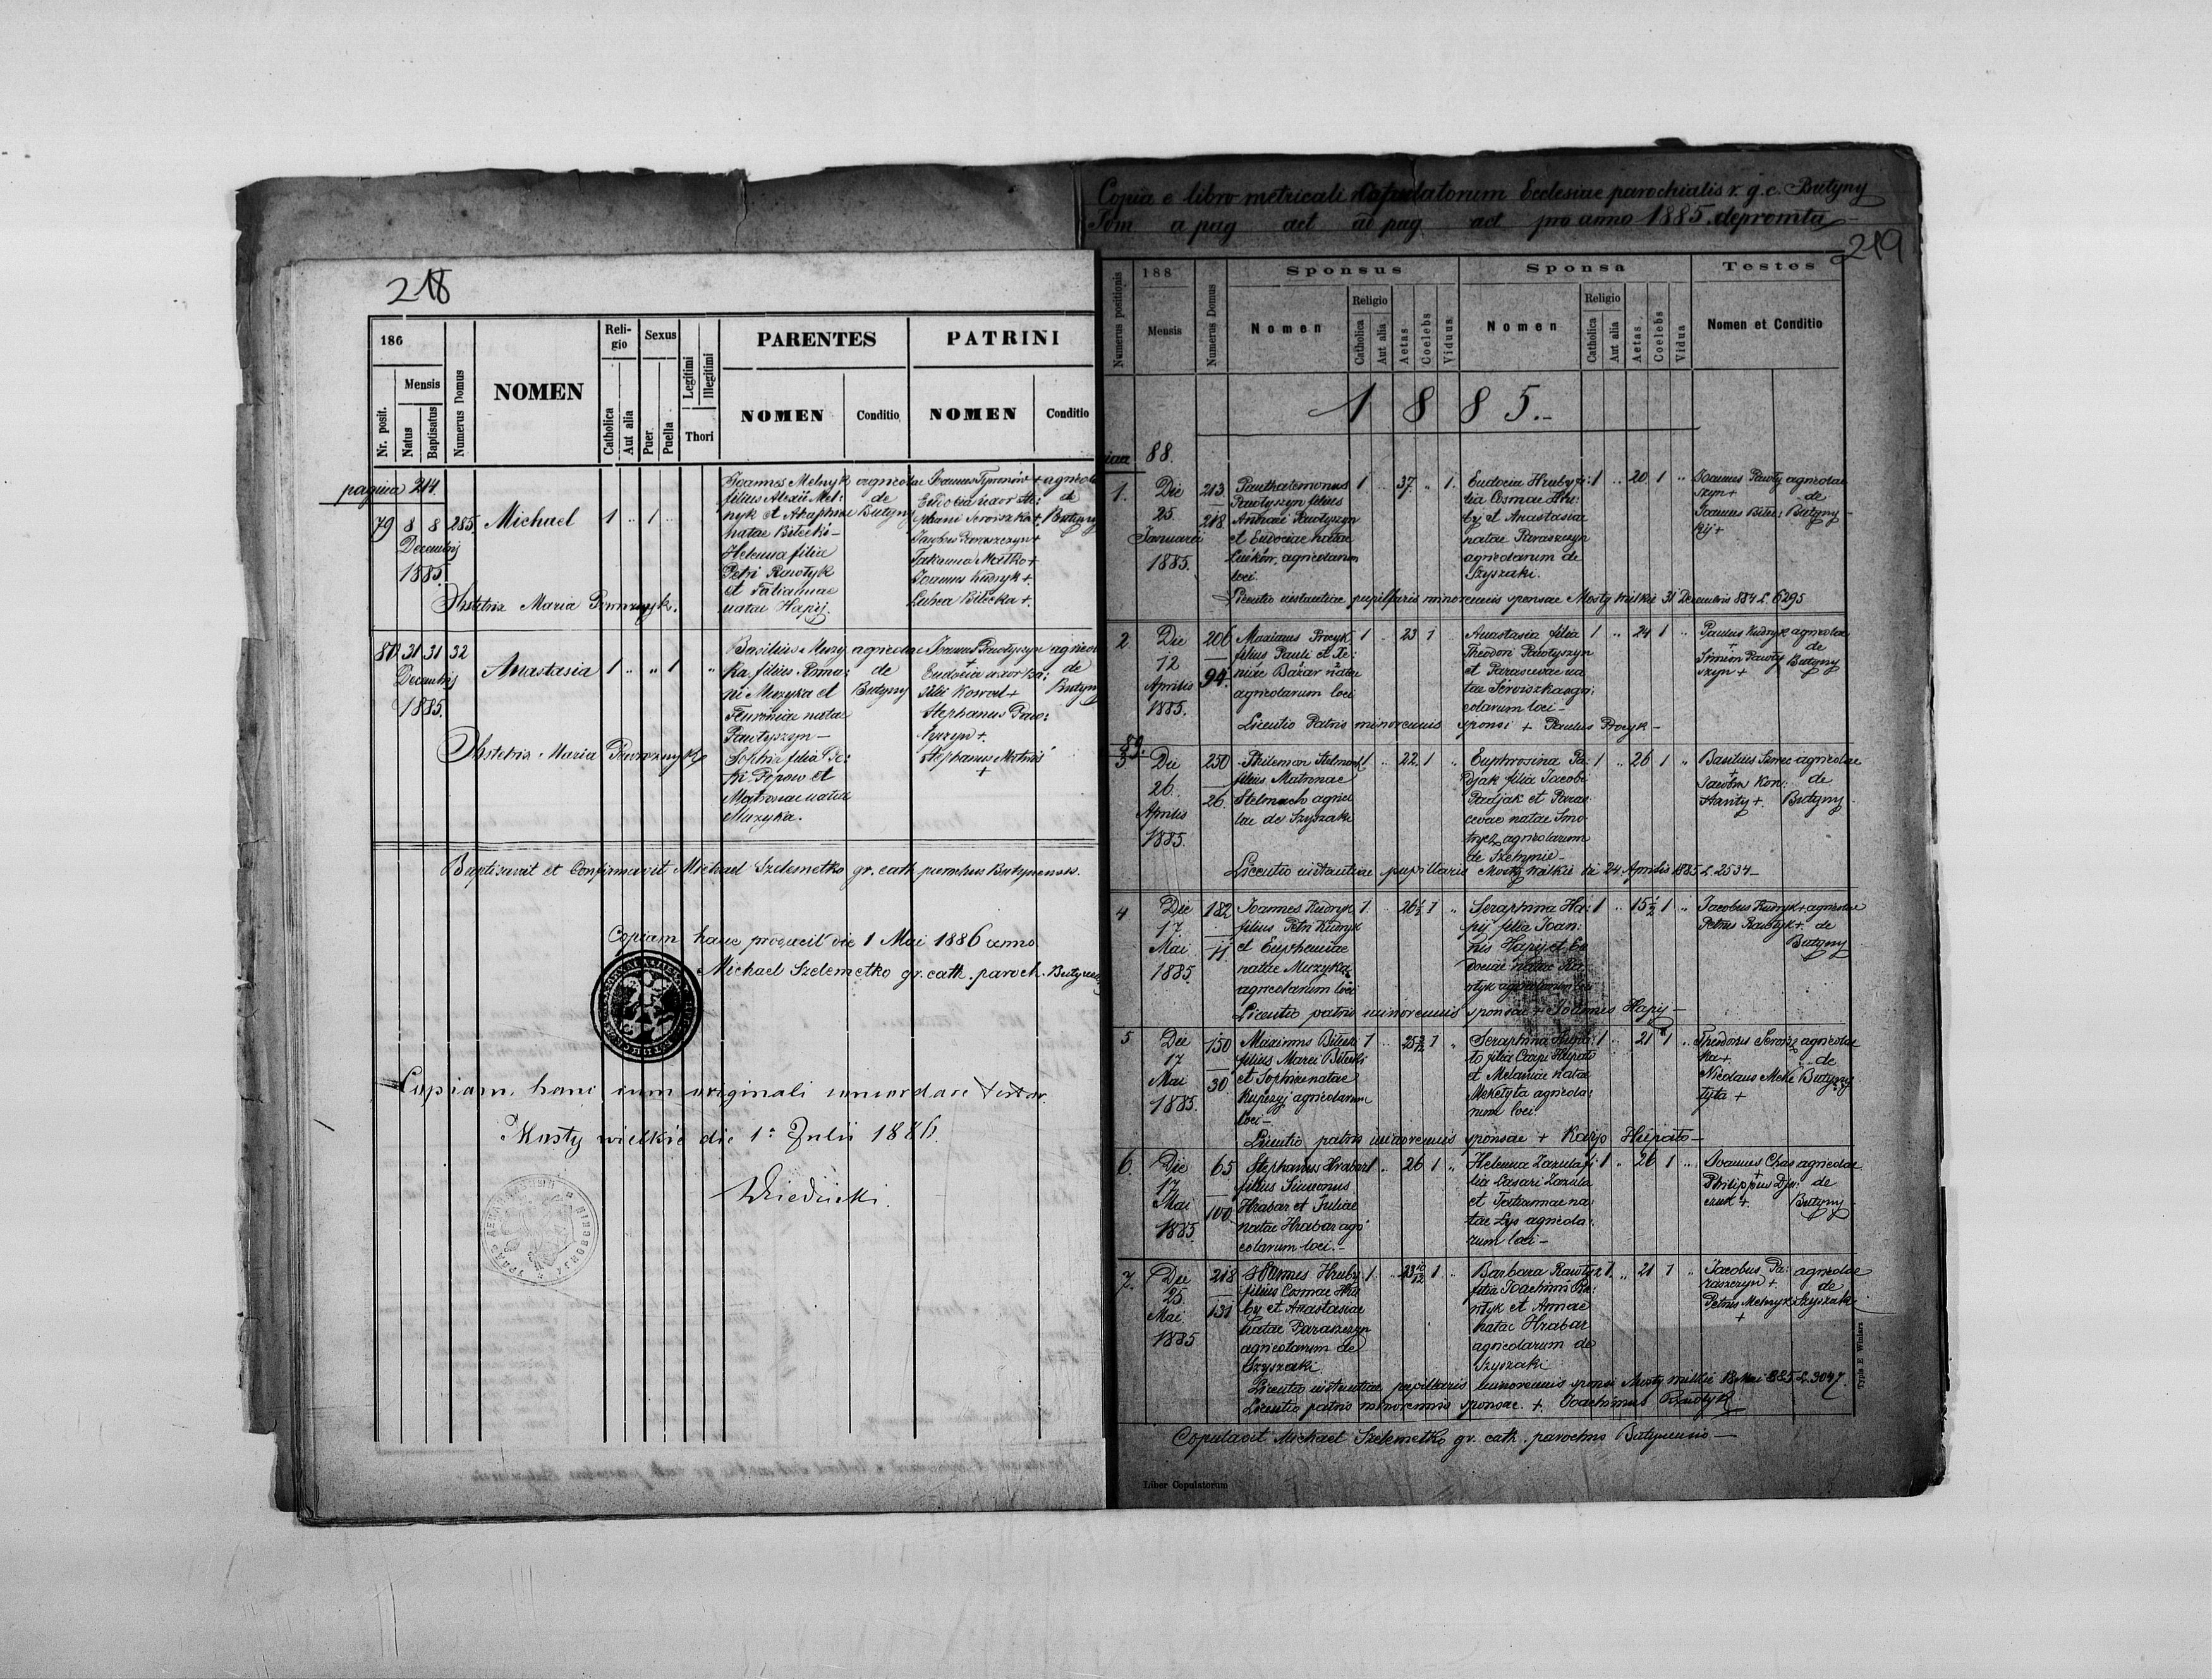 218
186
Nr. posit.
Mensis
Natus
Baptisatus
Numerus Domus
NOMEN
Religio
Catholica
Aut alia
Sexus
Puer
Puella
Legitimi
Illegitimi
Thori
PARENTES
NOMEN
Conditio
PATRINI
NOMEN
Conditio
pagina 214.
79 8 8 285 Michael 1 .. 1 ..
Decembris
1885.
Joannes Melnyk
filius Alexii Mel:
nyk et Agaphiae
natae Bilecki –
Helena filia
Petri Rawłyk
et Tatiannae
natae Hapij.
agricolae
de
Butyny
Joannes Tymoniów +
Eudocia uxor Ste:
phani Seroiszka +
Paraszczyn +
Matko +
Joannes Kudryk +
Bilecka +.
agricolae
de
Butyny
Obstetrix Maria
80 31 31 32 Anastasia 1 .. „ 1 „
Decembris
1885.
Basilius Muzy
ka filius Roma:
ni Muzyka et
natae
Pawłyszyn –
Sophia filia
Popow et
Matronae natae
Muzyka.
agricolae
de
Butyny
Joannes Pawłyszyn
+
Eudocia uxor Ba:
silii +
Stephanus Paw:
łyszyn +.
Stephanus
+
agricolae
de
Butyny
Obstetrix Maria
Baptisavit et Confirmavit Michael Szelemetko gr. cath. parochus Butynensis.
Copiam hanc die 1 Mai 1886 anno
Michael Szelemetko gr. cath. paroch. Butynensis
Copiam hanc cum originali concordare testor.
Mosty wielkie die 1a Julii 1886.
Copia e libro metricali Copulatorum Ecclesiae parochialis r. g. c. Butyny
Tom a pag act ad pag act pro anno 1885 depromta –
219
Numerus positionis
188
Mensis
Numerus Domus
Sponsus
Nomen
Religio
Catholica
Aut alia
Aetas
Coelebs
Viduus
Sponsa
Nomen
Religio
Catholica
Aut alia
Aetas
Coelebs
Vidua
Testes
Nomen et Conditio
1885.–
88.
1. Die
25.
Januarii
1885.
213
218
Panthalemonus
Pawłyszyn filius
Andreae Pawłyszyn
et Eudociae natae
Łućków, agricolarum
loci.
1 .. 37. „ 1.
Eudocia Hruby fi:
lia Cosmae Hru:
by et Anastasiae
natae Paraszczyn
agricolarum de
Szyszaki.
1 .. 20 1 „
Joannes Pawły
szyn +
Joannes Bilec:
kij +
agricolae
de
Butyny –
Licentio instantiae pupillaris minorennis sponsae Mosty wielkie 31 Decembris 884 L. 6295
2 Die
12
Aprilis
1885.
206
94.
Maximus Procyk
filius Pauli et Xe:
niae Bażar natae
agricolarum loci
1 .. 23 1 „
Anastasia filia
Theodori Pawłyszyn
et Parascevae na
tae Seroiszka agri:
colarum loci –
1 „ 24 1 „
Paulus Kudryk
+
Simeon Pawły
szyn +
agricolae
de
Butyny
Licentio Patris minorennis sponsi + Paulus Procyk –
89.
3 Die
26
Aprilis
1885.
250
26
Philemon Stelmach
filius Matronae
Stelmach agricol
lae de Szyszaki
1 .. 22. 1 „
Euphrosina Pa
djak filia Jacobi
Padjak et Paras
cevae natae
agricolarum
de
1 .. 26 1 „
Basilius
+
agricolae
de
Butyny –
Licentio instantiae pupillaris Mosty wielkie 24 Aprilis 1885 L. 2534 –
4 Die
17
Mai
1885
182
11
Joannes Kudryk
filius Petri Kudryk
et Euphemiae
natae Muzyka
agricolarum loci
1 .. 26 ½ 1 „
Seraphina Ha:
pij filia Joan:
nis Hapij et Eu
dociae natae Ra
włyk agricolarum loci
1 .. 15 ½ 1 „
Jacobus Kudryk +
Petrus Rawłyk +.
agricolae
de
Butyny
Licentio patris minorennis sponsae + Joannes Hapij –
5 Die
17
Mai
1885.
150
30
Maximus Bilecki
filius Marci Bilecki
et Sophiae natae
agricolarum
loci –
1 .. 1 „
Seraphina
filia
et Melaniae natae
Meketyta agricola:
rum loci
1 .. 21 1 „
Theodorus Seroisz
ka +
Nicolaus Meke
tyta +
agricolae
de
Butyny
Licentio patris minorennis sponsae +
6. Die
17
Mai
1885
65
100
Stephanus Hrabar
filius Simeonis
Hrabar et Juliae
natae Hrabar agri
colarum loci. –
1 .. 26 1 „
Helena Zazula fi
lia Lasari Zazula
et Tatiannae na
tae Lys agricola:
rum loci –
1 .. 26 1 „
Joannes Chas
+
Philippus
+
agricolae
de
Butyny –
7. Die
25
Mai
1885
218
131
Joannes Hruby
filius Cosmae Hru
by et Anastasiae
natae Paraszczyn
agricolarum de
Szyszaki
1. .. 1 „
Barbara Rawłyk
filia Joachimi Ra:
włyk et Annae
natae Hrabar
agricolarum de
Szyszaki
1. „ 21 1 „
Jacobus Pa:
raszczyn +
Petrus Melnyk
+
agricolae
de
Szyszaki
Licentio instantiae pupillaris minorennis sponsi Mosty wielkie 18 Mai 885 L. 3047
Licentio patris minorennis sponsae. + Joachimus Rawłyk
Copulavit Michael Szelemetko gr. cath. parochus Butynensis –
Liber Copulatorum
Typis E. Winiarz